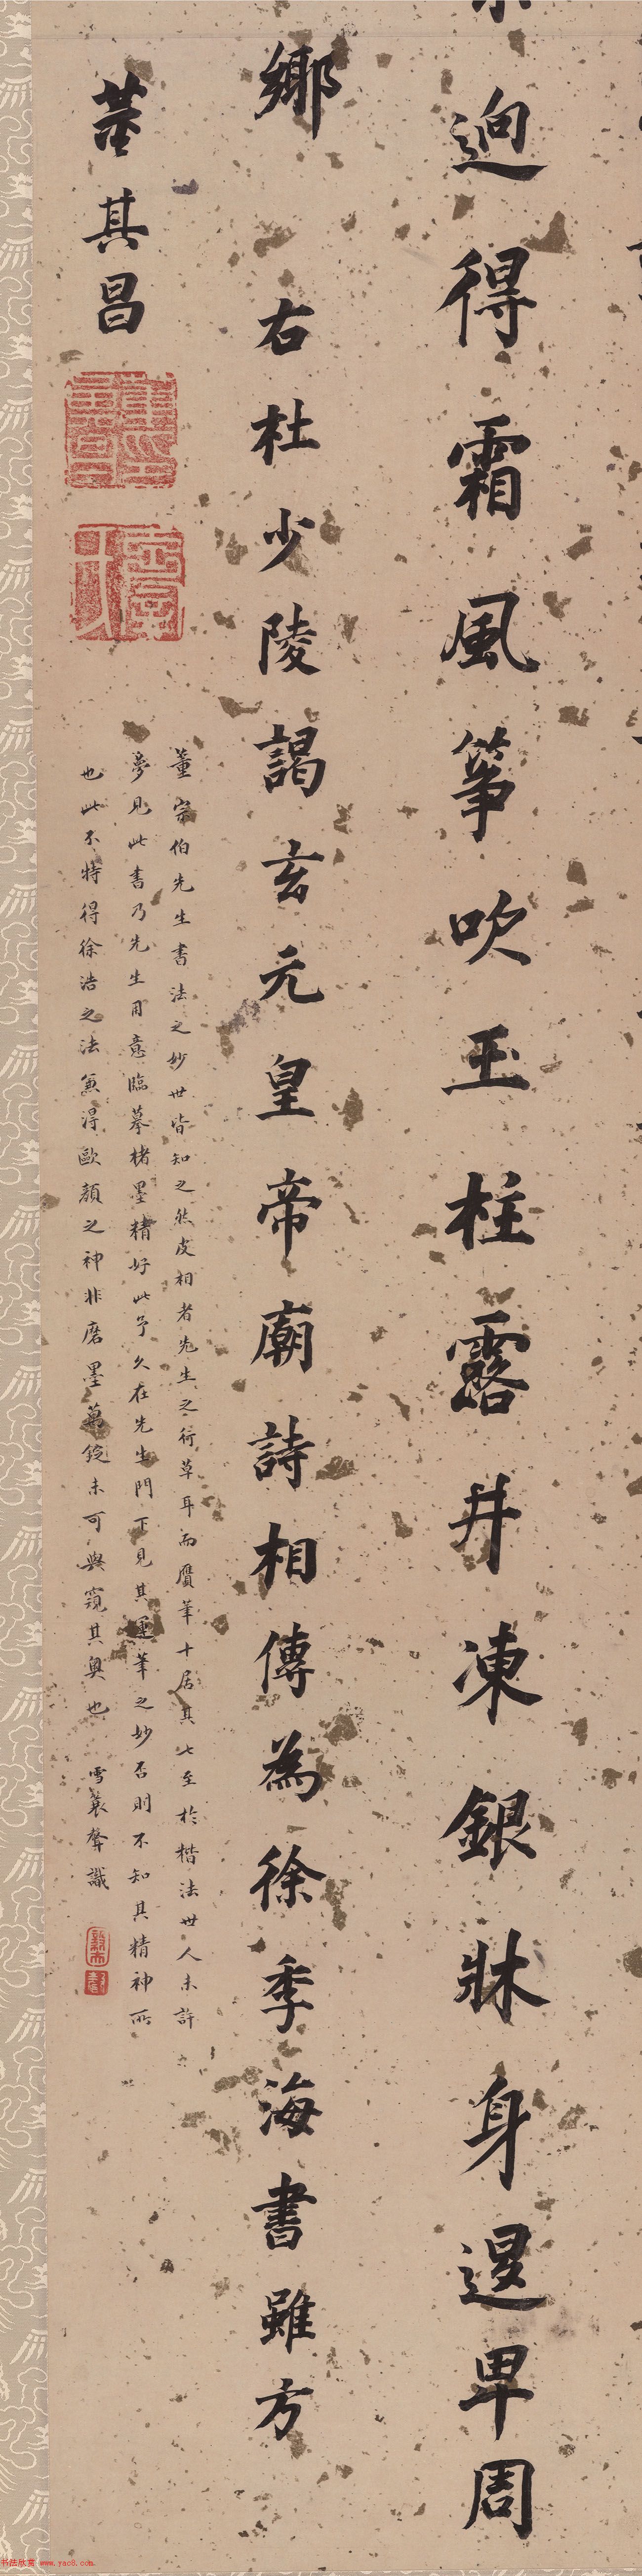 迥得霜風箏吹玉柱露井凍銀牀身退卑周
鄉 右杜少陵謁玄元皇帝廟詩相傳為徐季海書雖方
董其昌
董宗伯先生書法之妙世皆知之然皮相者先生之行草耳而贋筆十居其七至於楷法世人未許
夢見此書乃先生用意臨摹楮墨精好此予久在先生門下見其運筆之妙否則不知其精神所
也此不特得徐浩之法兼得歐顏之神非磨墨萬錠未可與窺其奧也 雪蓑聲識
书法欣赏 www.yac8.com